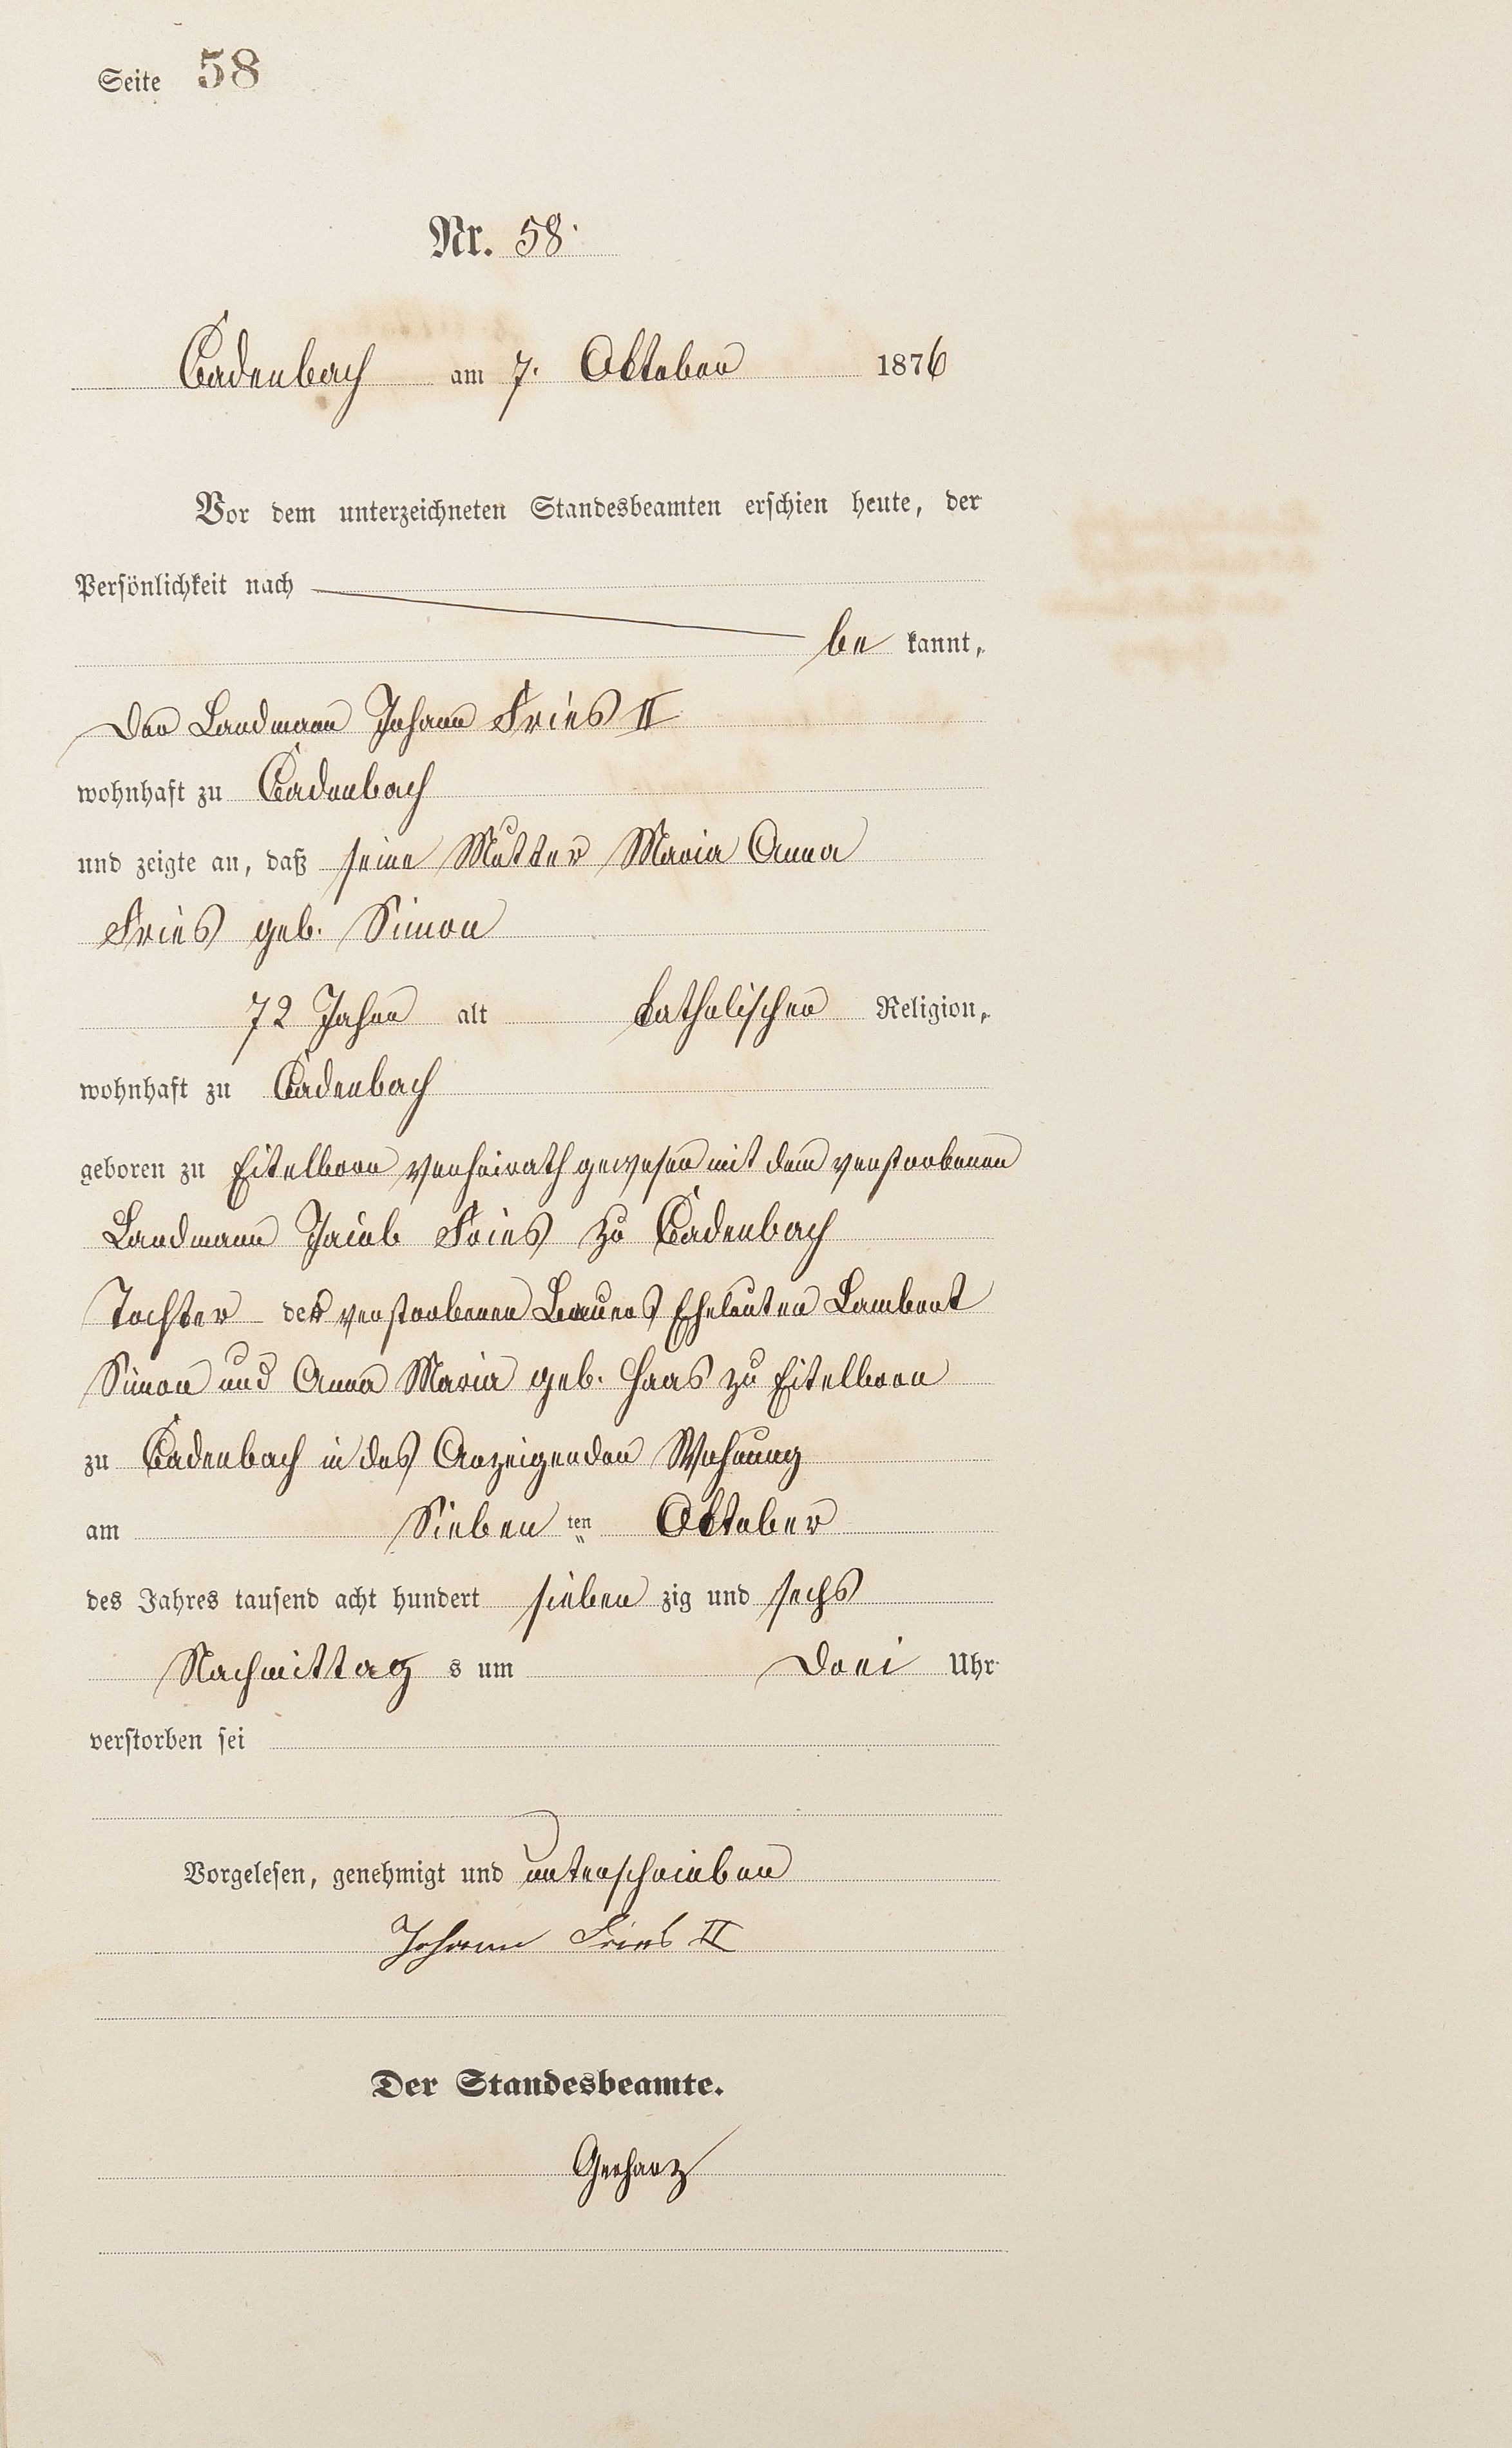 Seite 58
Nr. 58.
Cadenbach am 7. Oktober 1876
Vor dem unterzeichneten Standesbeamten erschien heute, der
Persönlichkeit nach
be kannt,
Der Landmann Johann Fries II
wohnhaft zu Cadenbach
und zeigte an, daß seine Mutter Maria Anna
Fries geb. Simon
72 Jahre alt katholischer Religion,
wohnhaft zu Cadenbach
geboren zu Eitelborn verheirath gewesen mit dem verstorbenen
Landmann Jacob Fries zu Cadenbach
Tochter der verstorbenen Bauers Eheleuten Lambert
Simon und Anna Maria geb. Haas zu Eitelborn
zu Cadenbach in des Anzeigenden Wohnung
am Sieben ten Oktober
des Jahres tausend acht hundert sieben zig und sechs
Nachmittag s um Drei Uhr
verstorben sei
Vorgelesen, genehmigt und unterschrieben
Johann Fries II
Der Standesbeamte.
Gerharz